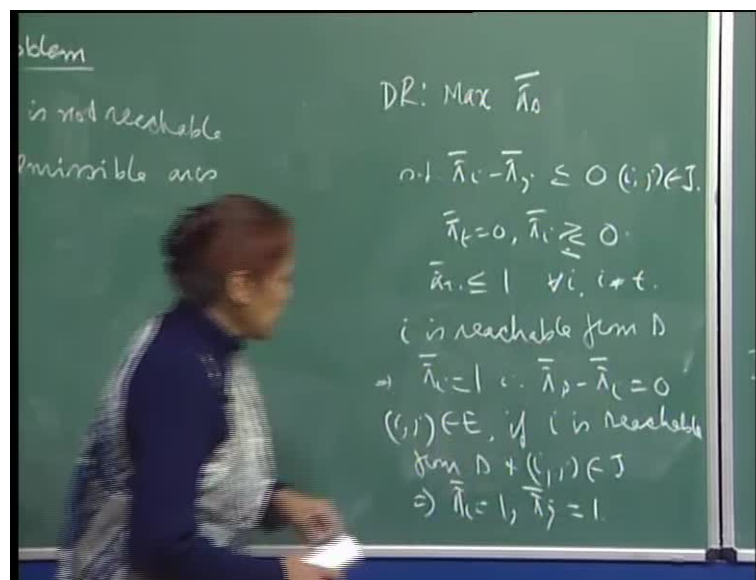 oblem
is not reachable
missible arcs
DR: Max π̄s
s.t. π̄i - π̄j ≤ 0 (i,j) ∈ J.
π̄t = 0, π̄i ≷ 0.
π̄i ≤ 1 ∀i, i ≠ t.
i is reachable from s
⇒ π̄i = 1 ∵ π̄s - π̄i = 0
(i,j) ∈ E, if i is reachable
from s & (i,j) ∈ J
⇒ π̄i = 1, π̄j = 1